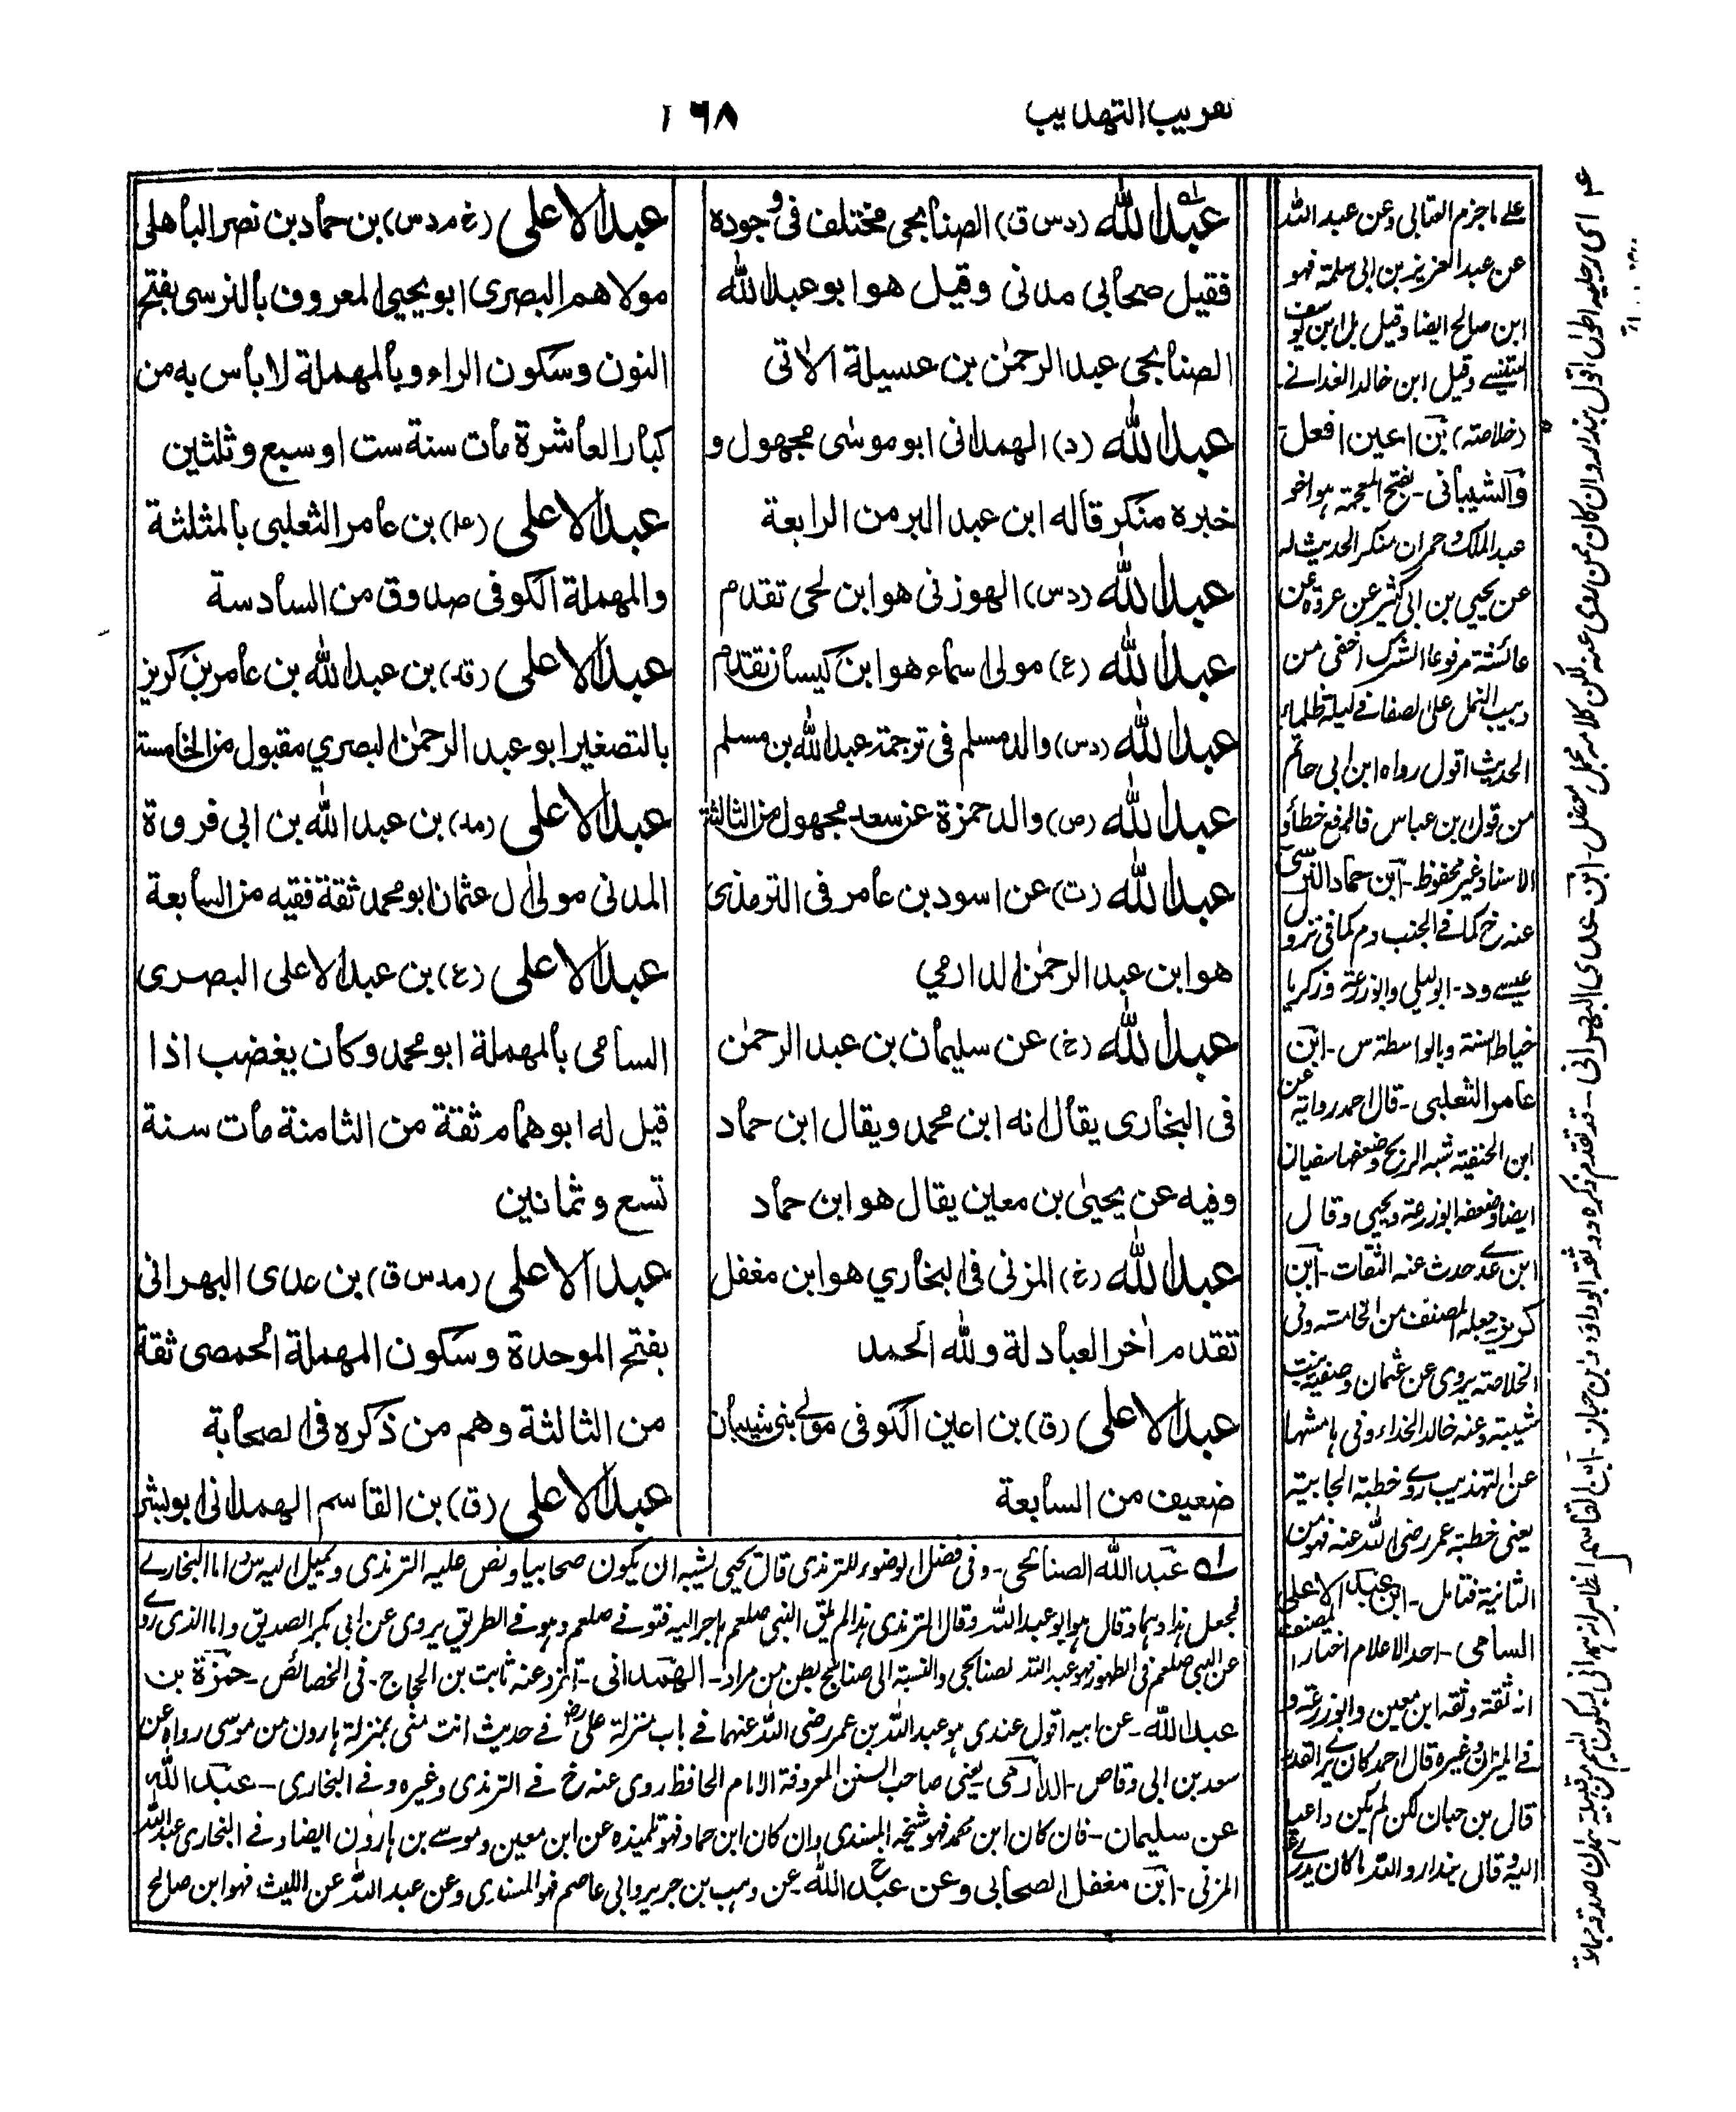 تقريب التهذيب
١٦٨
عبد الله (د س ق) الصنابحى مختلف فى وجوده
فقيل صحابى مدنى وقيل هو ابو عبد الله
الصنابحى عبد الرحمٰن بن عسيلة الاٰتى
عبد الله (د) الهمدانى ابو موسٰى مجهول و
خبره منكر قاله ابن عبد البر من الرابعة
عبد الله (د س) الهوزنى هو ابن لحى تقدم
عبد الله (ع) مولى اسماء هو ابن كيسان تقدم
عبد الله (د س) والد مسلم فى ترجمة عبد الله بن مسلم
عبد الله (ص) والد حمزة عن سعد مجهول من الثالثة
عبد الله (ت) عن اسود بن عامر فى الترمذى
هو ابن عبد الرحمٰن الدارمي
عبد الله (خ) عن سليمان بن عبد الرحمٰن
فى البخارى يقال انه ابن محمد ويقال ابن حماد
وفيه عن يحيىٰ بن معين يقال هو ابن حماد
عبد الله (خ) المزنى فى البخاري هو ابن مغفل
تقدم اٰخر العبادلة ولله الحمد
عبد الاعلى (ق) بن اعين الكوفى مولے بنى شيبان
ضعيف من السابعة
عبد الاعلى (خ م د س) بن حماد بن نصر الباهلى
مولاهم البصرى ابو يحيى المعروف بالنرسى بفتح
النون وسكون الراء وبالمهملة لا بأس به من
كبار العاشرة مات سنة ست او سبع وثلثين
عبد الاعلى (عه) بن عامر الثعلبى بالمثلثة
والمهملة الكوفى صدوق من السادسة
عبد الاعلى (قد) بن عبد الله بن عامر بن كريز
بالتصغير ابو عبد الرحمٰن البصري مقبول من الخامسة
عبد الاعلى (مد) بن عبد الله بن ابى فروة
المدنى مولىٰ اٰل عثمان ابو محمد ثقة فقيه من السابعة
عبد الاعلى (ع) بن عبد الاعلى البصرى
السامى بالمهملة ابو محمد وكان يغضب اذا
قيل له ابو همام ثقة من الثامنة مات سنة
تسع وثمانين
عبد الاعلى (مد س ق) بن عدى البهرانى
بفتح الموحدة وسكون المهملة الحمصى ثقة
من الثالثة وهم من ذكره فى الصحابة
عبد الاعلى (ق) بن القاسم الهمدانى ابو بشر
عبد الله الصنابحى - وفى فضل الوضوء للترمذى قال يحيى يشبه ان يكون صحابيا ونص عليه الترمذى ويميل اليه س واما البخارے
فجعل هذا وهما وقال هو ابو عبد الله وقال الترمذى هذا لم يلق النبى صلعم هاجر اليه فتوفے صلعم وهو فے الطريق يروى عن ابى بكر الصديق واما الذى روے
عن النبى صلعم فى الطهور فهو عبد الله الصنابحى والنسبة الى صنابح بطن من مراد - الهمدانى - وعنه ثابت بن الحجاج - فى الخصائص - حمزة بن
عبد الله - عن ابيه اقول عندى هو عبد الله بن عمر رضى الله عنهما فے باب منزلة على رض فے حديث انت منى بمنزلة هارون من موسى رواه عن
سعد بن ابى وقاص - الدارمى يعنى صاحب السنن المعروفة الامام الحافظ روى عنه خ فے الترمذى وغيره وفے البخارى - عبد الله
عن سليمان - فان كان ابن محمد فهو شيخه المسندى وان كان ابن حماد فهو تلميذه عن ابن معين وموسے بن هارون ايضا وفے البخارى عبد الله
المزنى - ابن مغفل الصحابى وعن عبد الله عن وهب بن جرير وابى عاصم فهو المسندى وعن عبد الله عن الليث فهو ابن صالح
علے ما جزم الغسانى وعن عبد الله
عن عبد العزيز بن ابى سلمة فهو
ابن صالح ايضا وقيل بل ابن يوسف
التنيسے وقيل ابن خالد الغدانے
(خلاصة) بن اعين افعل
والشيبانى - بفتح المعجمة هو اخو
عبد الملك وحمران منكر الحديث له
عن يحيى بن ابى كثير عن عروة عن
عائشة مرفوعا الشرك اخفى من
دبيب النمل على الصفا فے ليلة ظلماء
الحديث اقول رواه ابن ابى حاتم
من قول ابن عباس فالرفع خطأ و
الاسناد غير محفوظ - ابن حماد النرسى
عنه خ كما فے الجنب د م كما فى
وابو زرعة وزكريا
خياط السنة وبالواسطة س - ابن
عامر الثعلبى - قال احمد روايته عن
ابن الحنفية شبه الريح وضعفها سفيان
ايضا وضعفه ابو زرعة ويحيى وقال
ابن عدے حدث عنه الثقات - ابن
كريز جعله المصنف من الخامسة وفى
الخلاصة يروى عن عثمان وصفية بنت
شيبة وعنه خالد الحذاء وفى هامشها
عن التهذيب روے خطبة الجابية
يعنى خطبة عمر رضى الله عنه فهو من
الثانية فتامل - ابن عبد الاعلى
السامى - احد الاعلام اختار المصنف
انه ثقة وثقه ابن معين وابو زرعة و
فے الميزان وغيره قال احمد كان يرے القدر
قال بن حبان لكن لم يكن داعيا
اليه وقال بندار والله ما كان يدرے
اى رجليه اطول اقول بندار وان كان ممن روى عنه لكن كلامه مجمل - ابن عدى البهرانى - قد تقدم ذكره ووثقه ابو داود وابن حبان - ابن القاسم